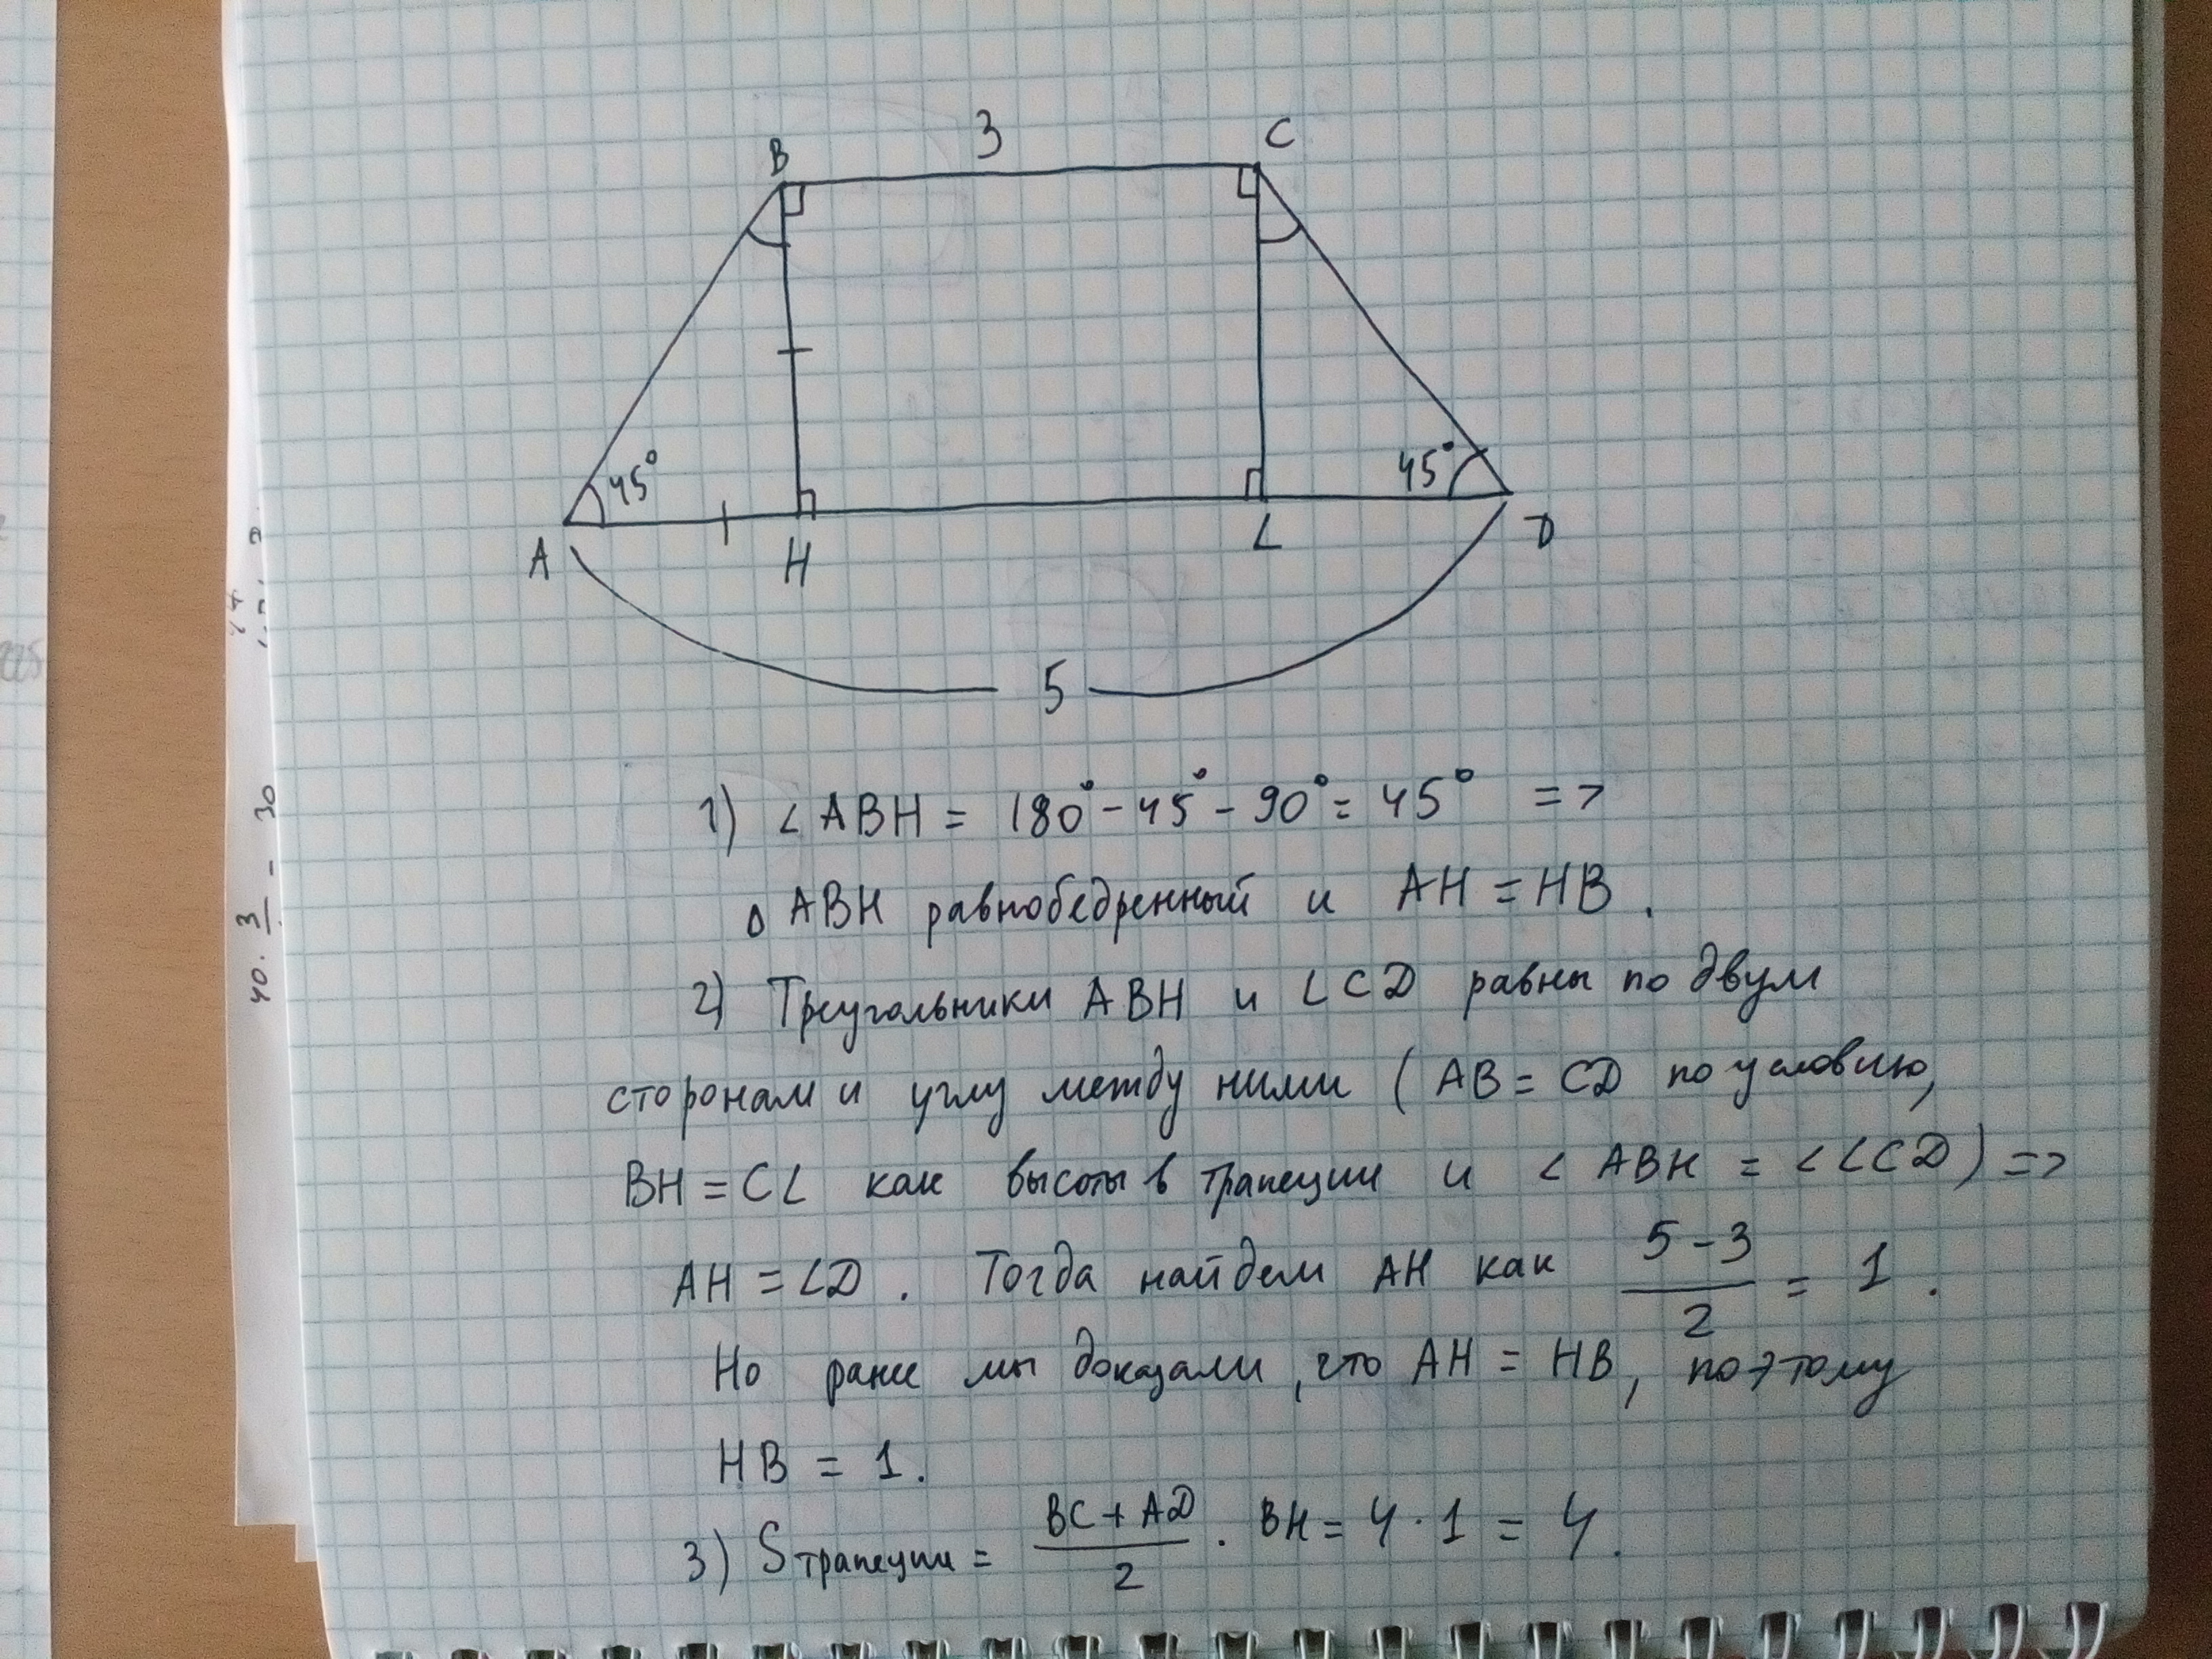 3
B
C
45°
45°
A
H
L
D
5
1) ∠ABH = 180° - 45° - 90° = 45° =>
△ ABH равнобедренный и AH = HB.
2) Треугольники ABH и LCD равны по двум
сторонам и углу между ними (AB = CD по условию,
BH = CL как высоты в трапеции и ∠ ABH = ∠LCD) =>
AH = LD. Тогда найдем AH как \frac{5-3}{2} = 1.
Но ранее мы доказали, что AH = HB, поэтому
HB = 1.
3) Sтрапеции = \frac{BC + AD}{2} · BH = 4 · 1 = 4.
40 · \frac{3}{} - 30
225